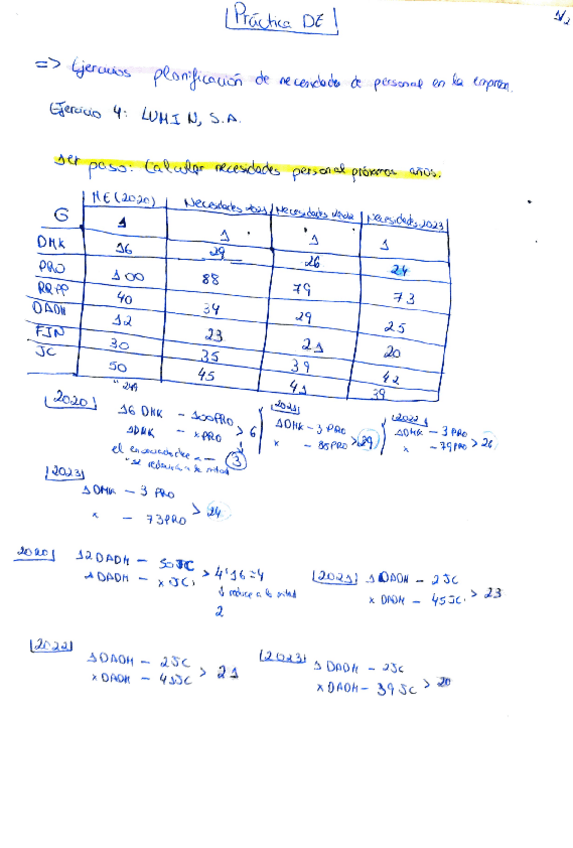 Práctica DE
1/2
=> Ejercicios planificación de necesidades de personal en la empresa.
Ejercicio 4: LUMIN, S.A.
1er paso: Calcular necesidades personal próximos años.
NE (2020) Necesidades 2021 Necesidades Necesidades 2023
G 1 1 1 1
DMK 16 29 26 24
PRO 100 88 79 73
RRPP 40 34 29 25
DADM 12 23 21 20
FIN 30 35 39 42
JC 50 45 41 39
249
2020 16 DMK - 100PRO > 6
1DMK - xPRO
el
se reducirá a la mitad 3
2021
1DMK - 3 PRO
x - 88PRO > 29
2022
1DMK - 3 PRO
x - 79PRO > 26
2023
1DMK - 3 PRO
x - 73PRO > 24
2020 12 DADM - 50JC
1DADM - x JC > 4'16 = 4
reduce a la mitad
2
2021 1 DADM - 2JC
x DADM - 45JC > 23
2022
1DADM - 2JC
x DADM - 41JC > 21
2023 1 DADM - 2JC
x DADM - 39 JC > 20